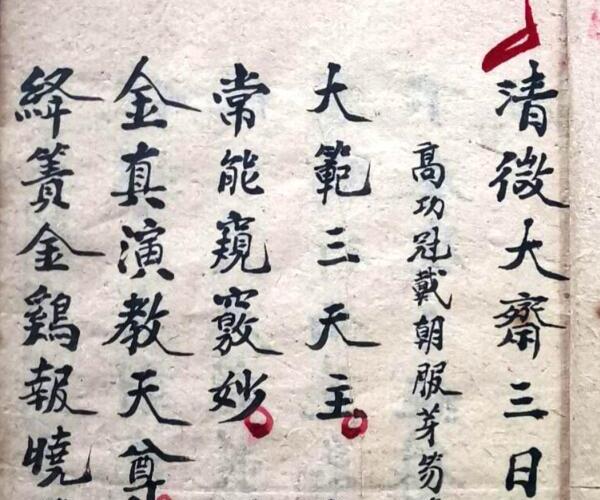 清微大齋三日
高功冠戴朝服芽笏
大範三天主
常能窺竅妙
金真演教天尊
絳簀金鷄報曉